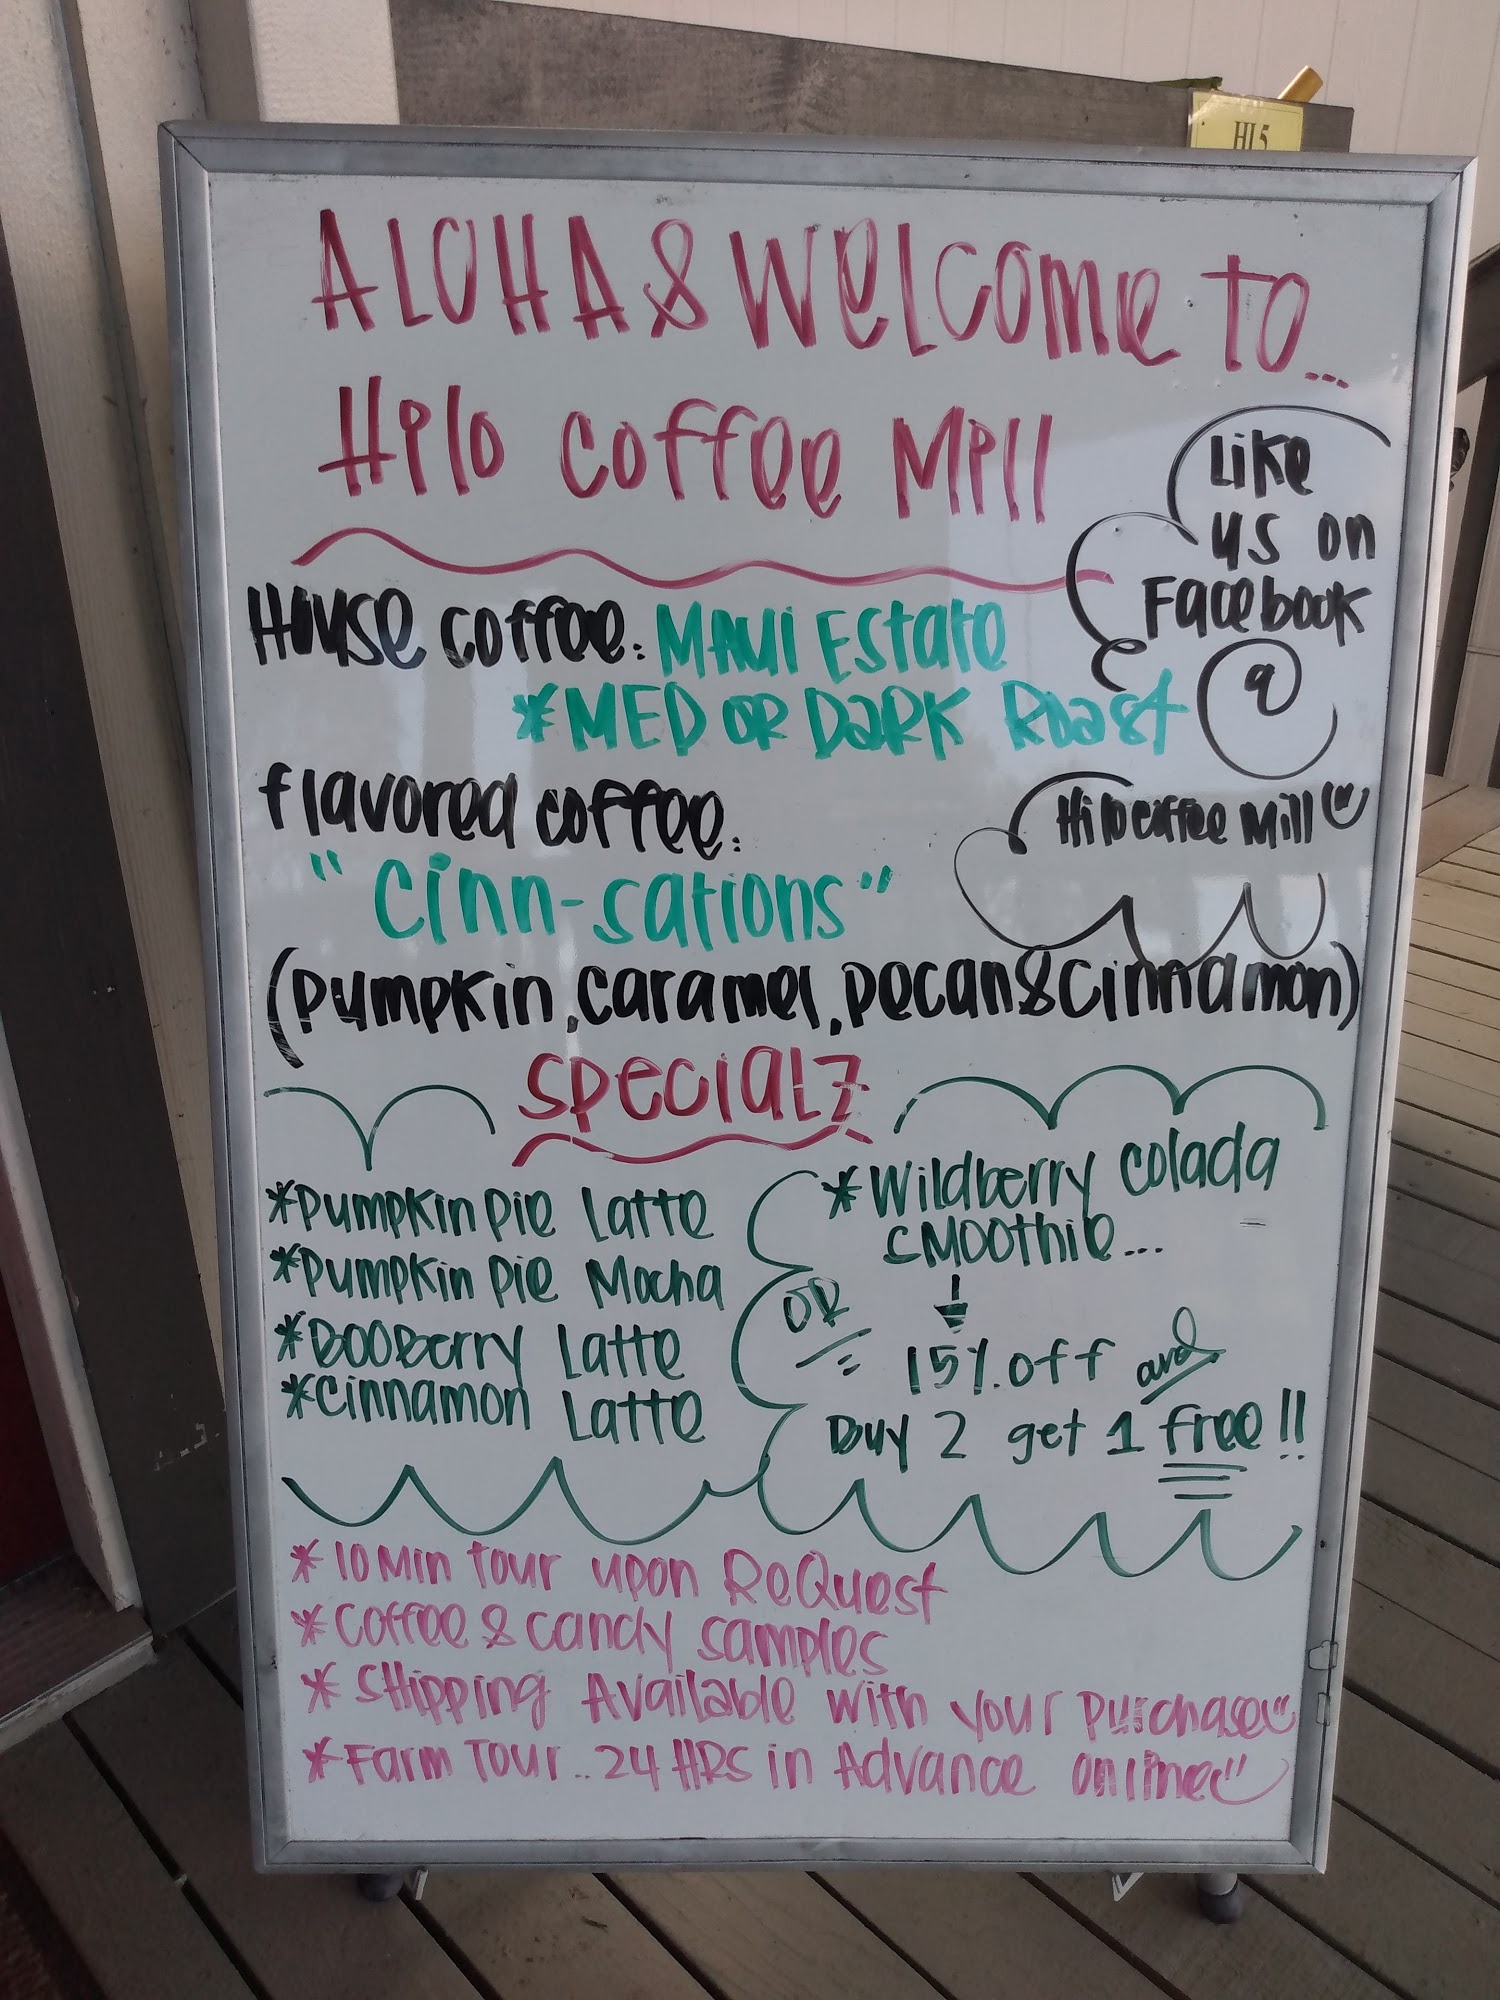 HI 5
ALOHA & Welcome to...
Hilo Coffee Mill
Like
us on
Facebook
@
Hilo Coffee Mill
House Coffee: Maui Estate
*MED OR DARK Roast
flavored coffee:
"Cinn-sations"
(pumpkin, caramel, pecan & cinnamon)
SPECIALZ
*Pumpkin Pie Latte
*Pumpkin Pie Mocha
*BooBerry Latte
*Cinnamon Latte
OR
*Wildberry Colada
Smoothie...
15% off and
Buy 2 get 1 free!!
*10 Min Tour upon ReQuest
*Coffee & candy samples
*Shipping Available with your purchase
*Farm Tour.. 24 HRS in Advance online